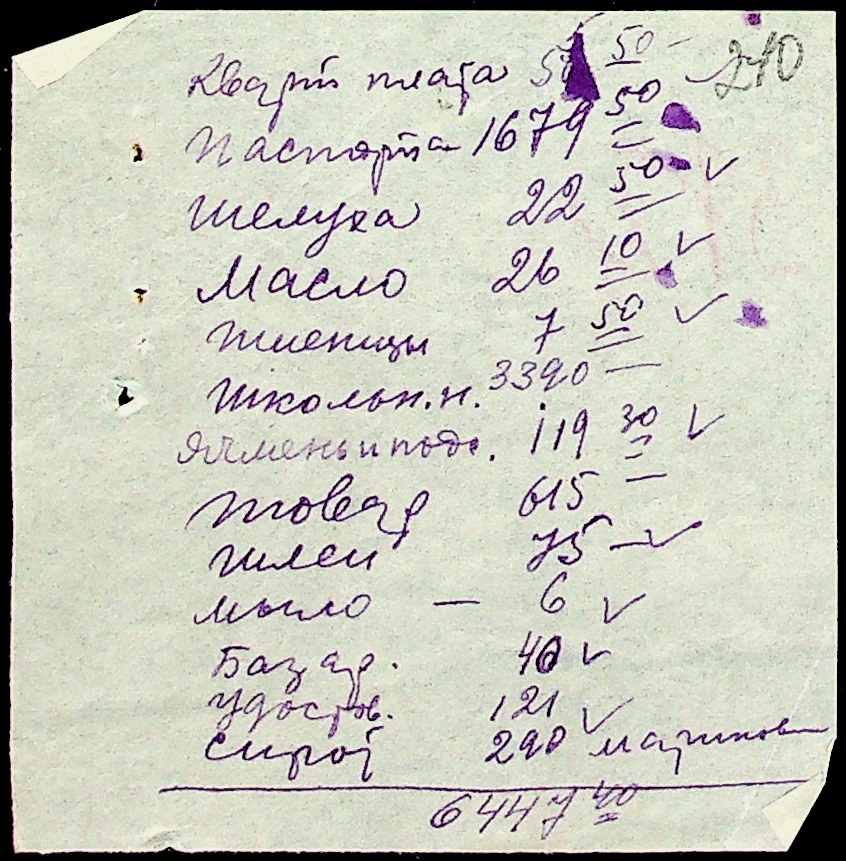 270
Кварт плата 55 50 -
Паспорта 1679 50
шелуха 22 50 ✓
Масло 26 10 ✓
пшеницы 7 50 ✓
школьн.н. 3390 —
Ячмень и подс. 119 30 ✓
товар 615 —
шлеи 75 — ✓
мыло — 6 ✓
Базар. 40 ✓
удостов. 121 ✓
сирот 290
6447 40